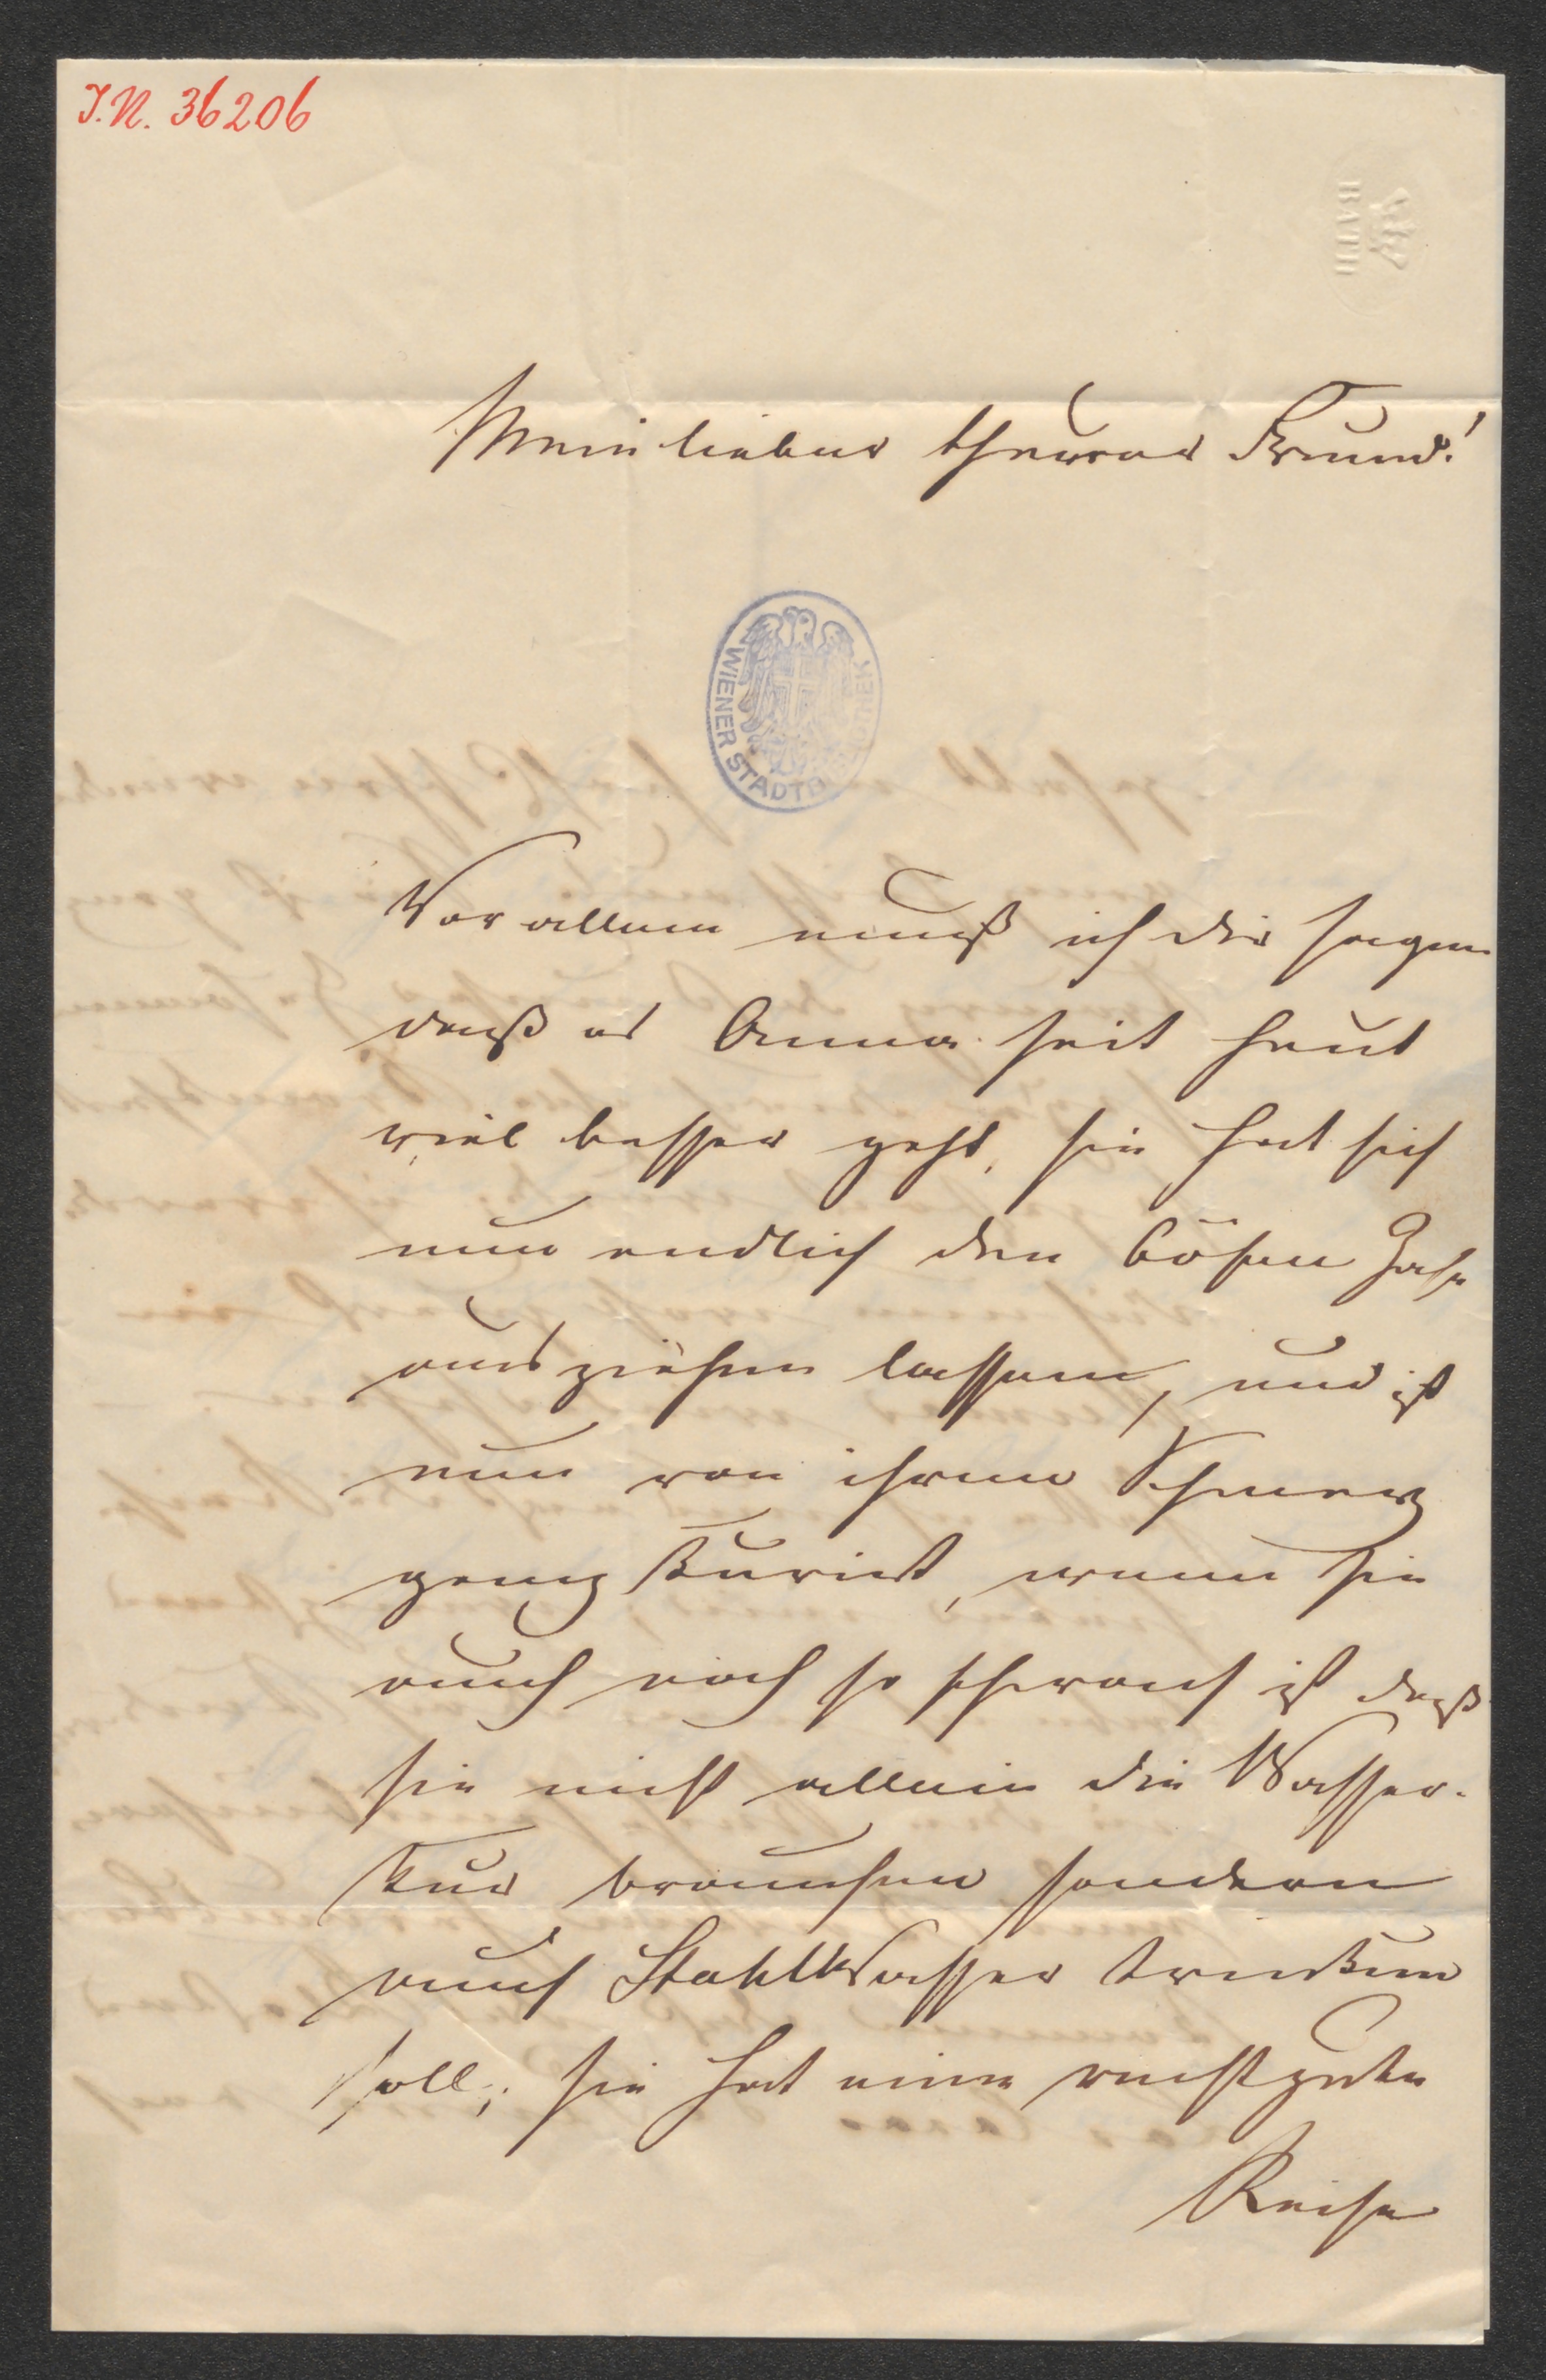 I.N. 36206
BATH
Mein lieber theurer Freund!
WIENER STADTBIBLIOTHEK
Vor allem muß ich dir sagen
daß es Anna seit heut
viel besser geht, sie hat sich
nun endlich den bösen Zahn
ausziehen lassen, und ist
nun von ihrem Schmerz
ganz kurirt, wenn sie
auch noch so schwach ist daß
sie nicht allein die Wasser-
kur brauchen sondern
auch Stahlwasser trinken
soll; sie hat eine recht gute
Reise